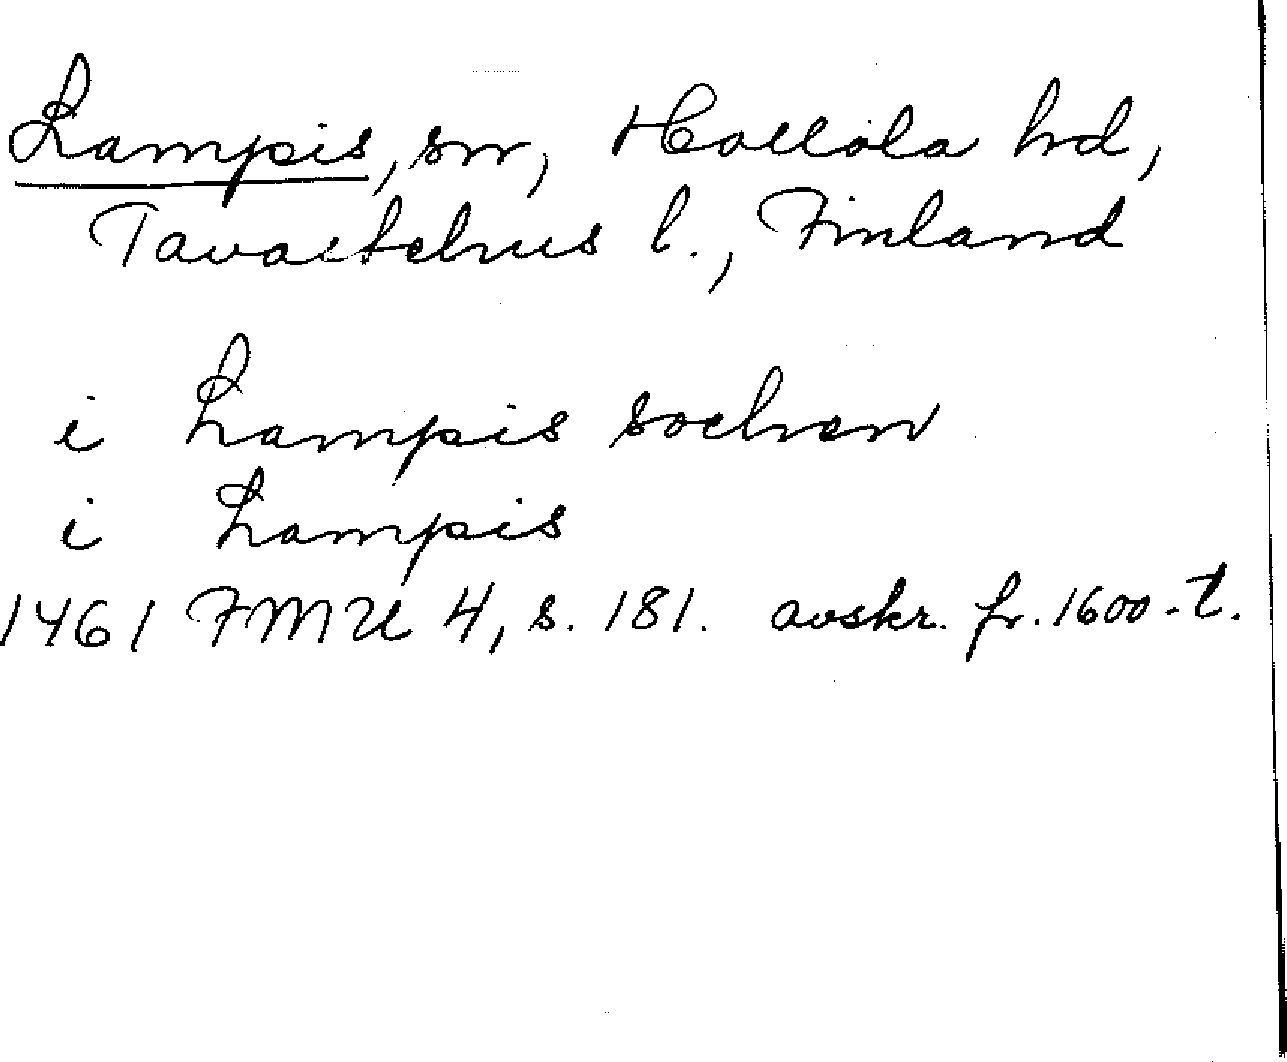 Lampis, sn, Hollola hd,
Tavastehus l., Finland
i Lampis sochen
i Lampis
1461 FMU 4, s. 181. avskr. fr. 1600-t.